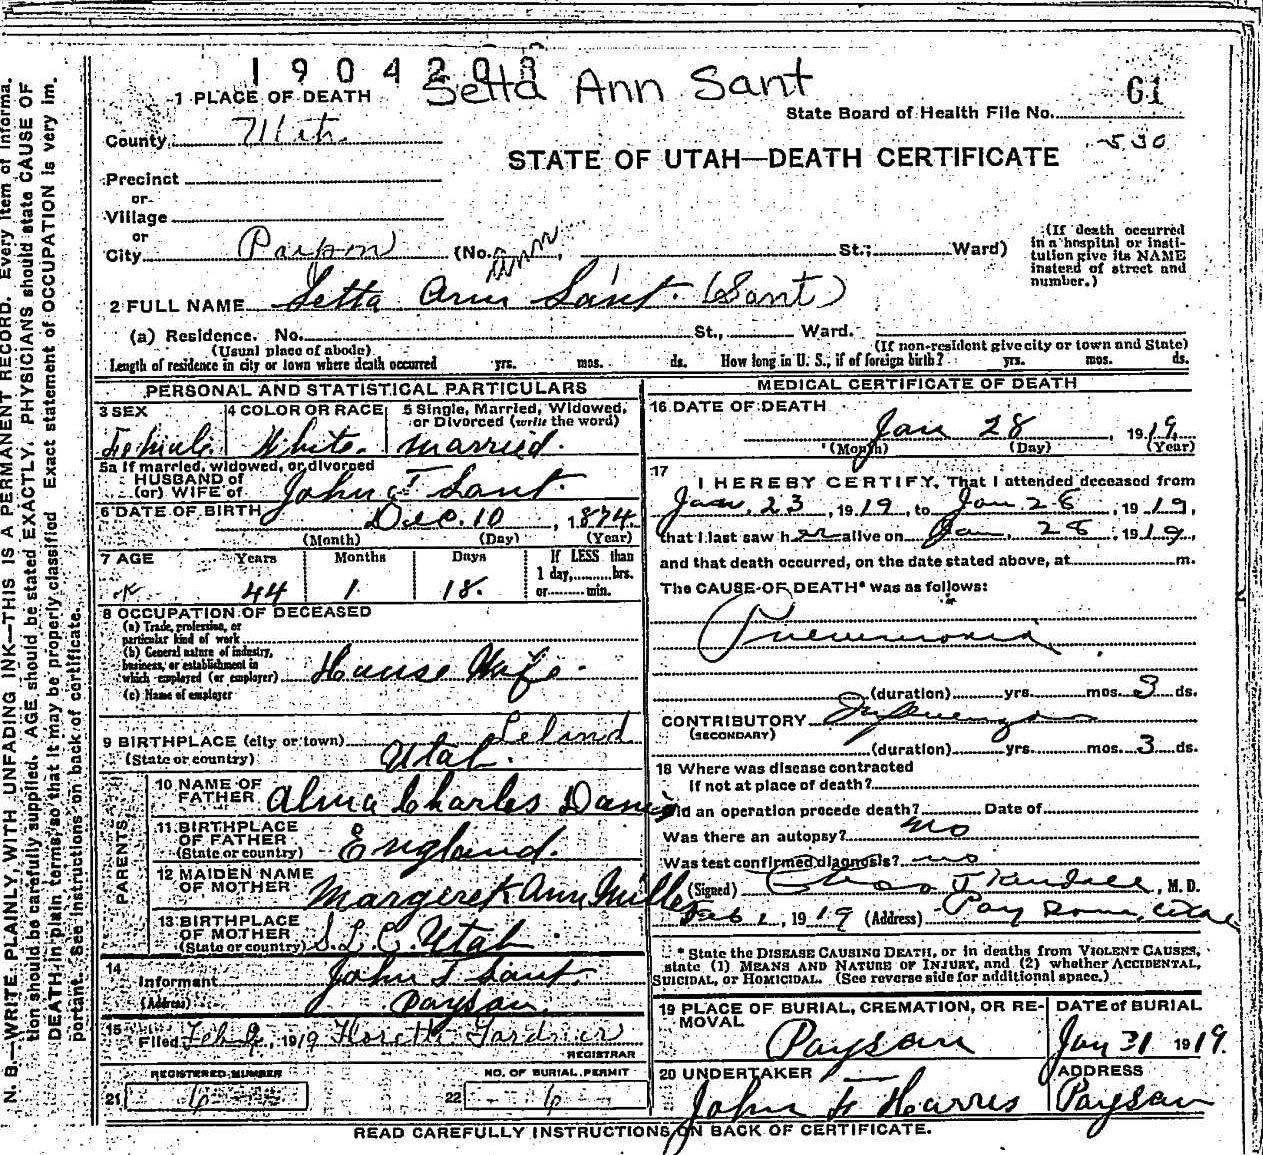 1904203
Setta Ann Sant
1 PLACE OF DEATH
State Board of Health File No. 61
County Utah
530
STATE OF UTAH—DEATH CERTIFICATE
Precinct
or
Village
or
City Payson (No. St.; Ward)
(If death occurred in a hospital or institution give its NAME instead of street and number.)
Ann
2 FULL NAME Setta Ann Sant. (Sant)
(a) Residence. No. St., Ward.
(Usual place of abode) (If non-resident give city or town and State)
Length of residence in city or town where death occurred yrs. mos. ds. How long in U. S., if of foreign birth? yrs. mos. ds.
PERSONAL AND STATISTICAL PARTICULARS
3 SEX 4 COLOR OR RACE 5 Single, Married, Widowed, or Divorced (write the word)
Female White married.
5a If married, widowed, or divorced
HUSBAND of
(or) WIFE of John T Sant.
6 DATE OF BIRTH Dec. 10, 1874.
(Month) (Day) (Year)
7 AGE Years Months Days If LESS than
1 day, hrs.
44 1 18. or min.
8 OCCUPATION OF DECEASED
(a) Trade, profession, or
particular kind of work
(b) General nature of industry,
business, or establishment in
which employed (or employer) House Wife.
(c) Name of employer
9 BIRTHPLACE (city or town) Leland
(State or country) Utah.
PARENTS
10 NAME OF
FATHER Alma Charles Davis
11 BIRTHPLACE
OF FATHER
(State or country) England.
12 MAIDEN NAME
OF MOTHER Margeret Ann Miller
13 BIRTHPLACE
OF MOTHER
(State or country) S. L. C. Utah
14
Informant John T Sant.
(Address) Payson.
15
Filed Feb 2, 1919 Gardner
REGISTRAR
REGISTERED NUMBER NO. OF BURIAL PERMIT
21 6 22 6
MEDICAL CERTIFICATE OF DEATH
16 DATE OF DEATH
Jan 28, 1919
(Month) (Day) (Year)
17
I HEREBY CERTIFY, That I attended deceased from
Jan. 23, 1919, to Jan. 28, 1919,
that I last saw her alive on Jan. 28, 1919,
and that death occurred, on the date stated above, at m.
The CAUSE OF DEATH* was as follows:
Pneumonia
(duration) yrs. mos. 3 ds.
CONTRIBUTORY Influenza
(SECONDARY)
(duration) yrs. mos. 3 ds.
18 Where was disease contracted
If not at place of death?
Did an operation precede death? Date of
Was there an autopsy? no
Was test confirmed diagnosis? no
(Signed) , M. D.
Feb 1, 1919 (Address) Payson, Utah
* State the DISEASE CAUSING DEATH, or in deaths from VIOLENT CAUSES,
state (1) MEANS AND NATURE OF INJURY, and (2) whether ACCIDENTAL,
SUICIDAL, or HOMICIDAL. (See reverse side for additional space.)
19 PLACE OF BURIAL, CREMATION, OR RE- DATE of BURIAL
MOVAL
Payson Jan 31 1919.
20 UNDERTAKER ADDRESS
John F Harris Payson
READ CAREFULLY INSTRUCTIONS ON BACK OF CERTIFICATE.
N. B.—WRITE PLAINLY, WITH UNFADING INK—THIS IS A PERMANENT RECORD. Every item of informa-
tion should be carefully supplied. AGE should be stated EXACTLY. PHYSICIANS should state CAUSE OF
DEATH in plain terms, so that it may be properly classified. Exact statement of OCCUPATION is very im-
portant. See instructions on back of certificate.